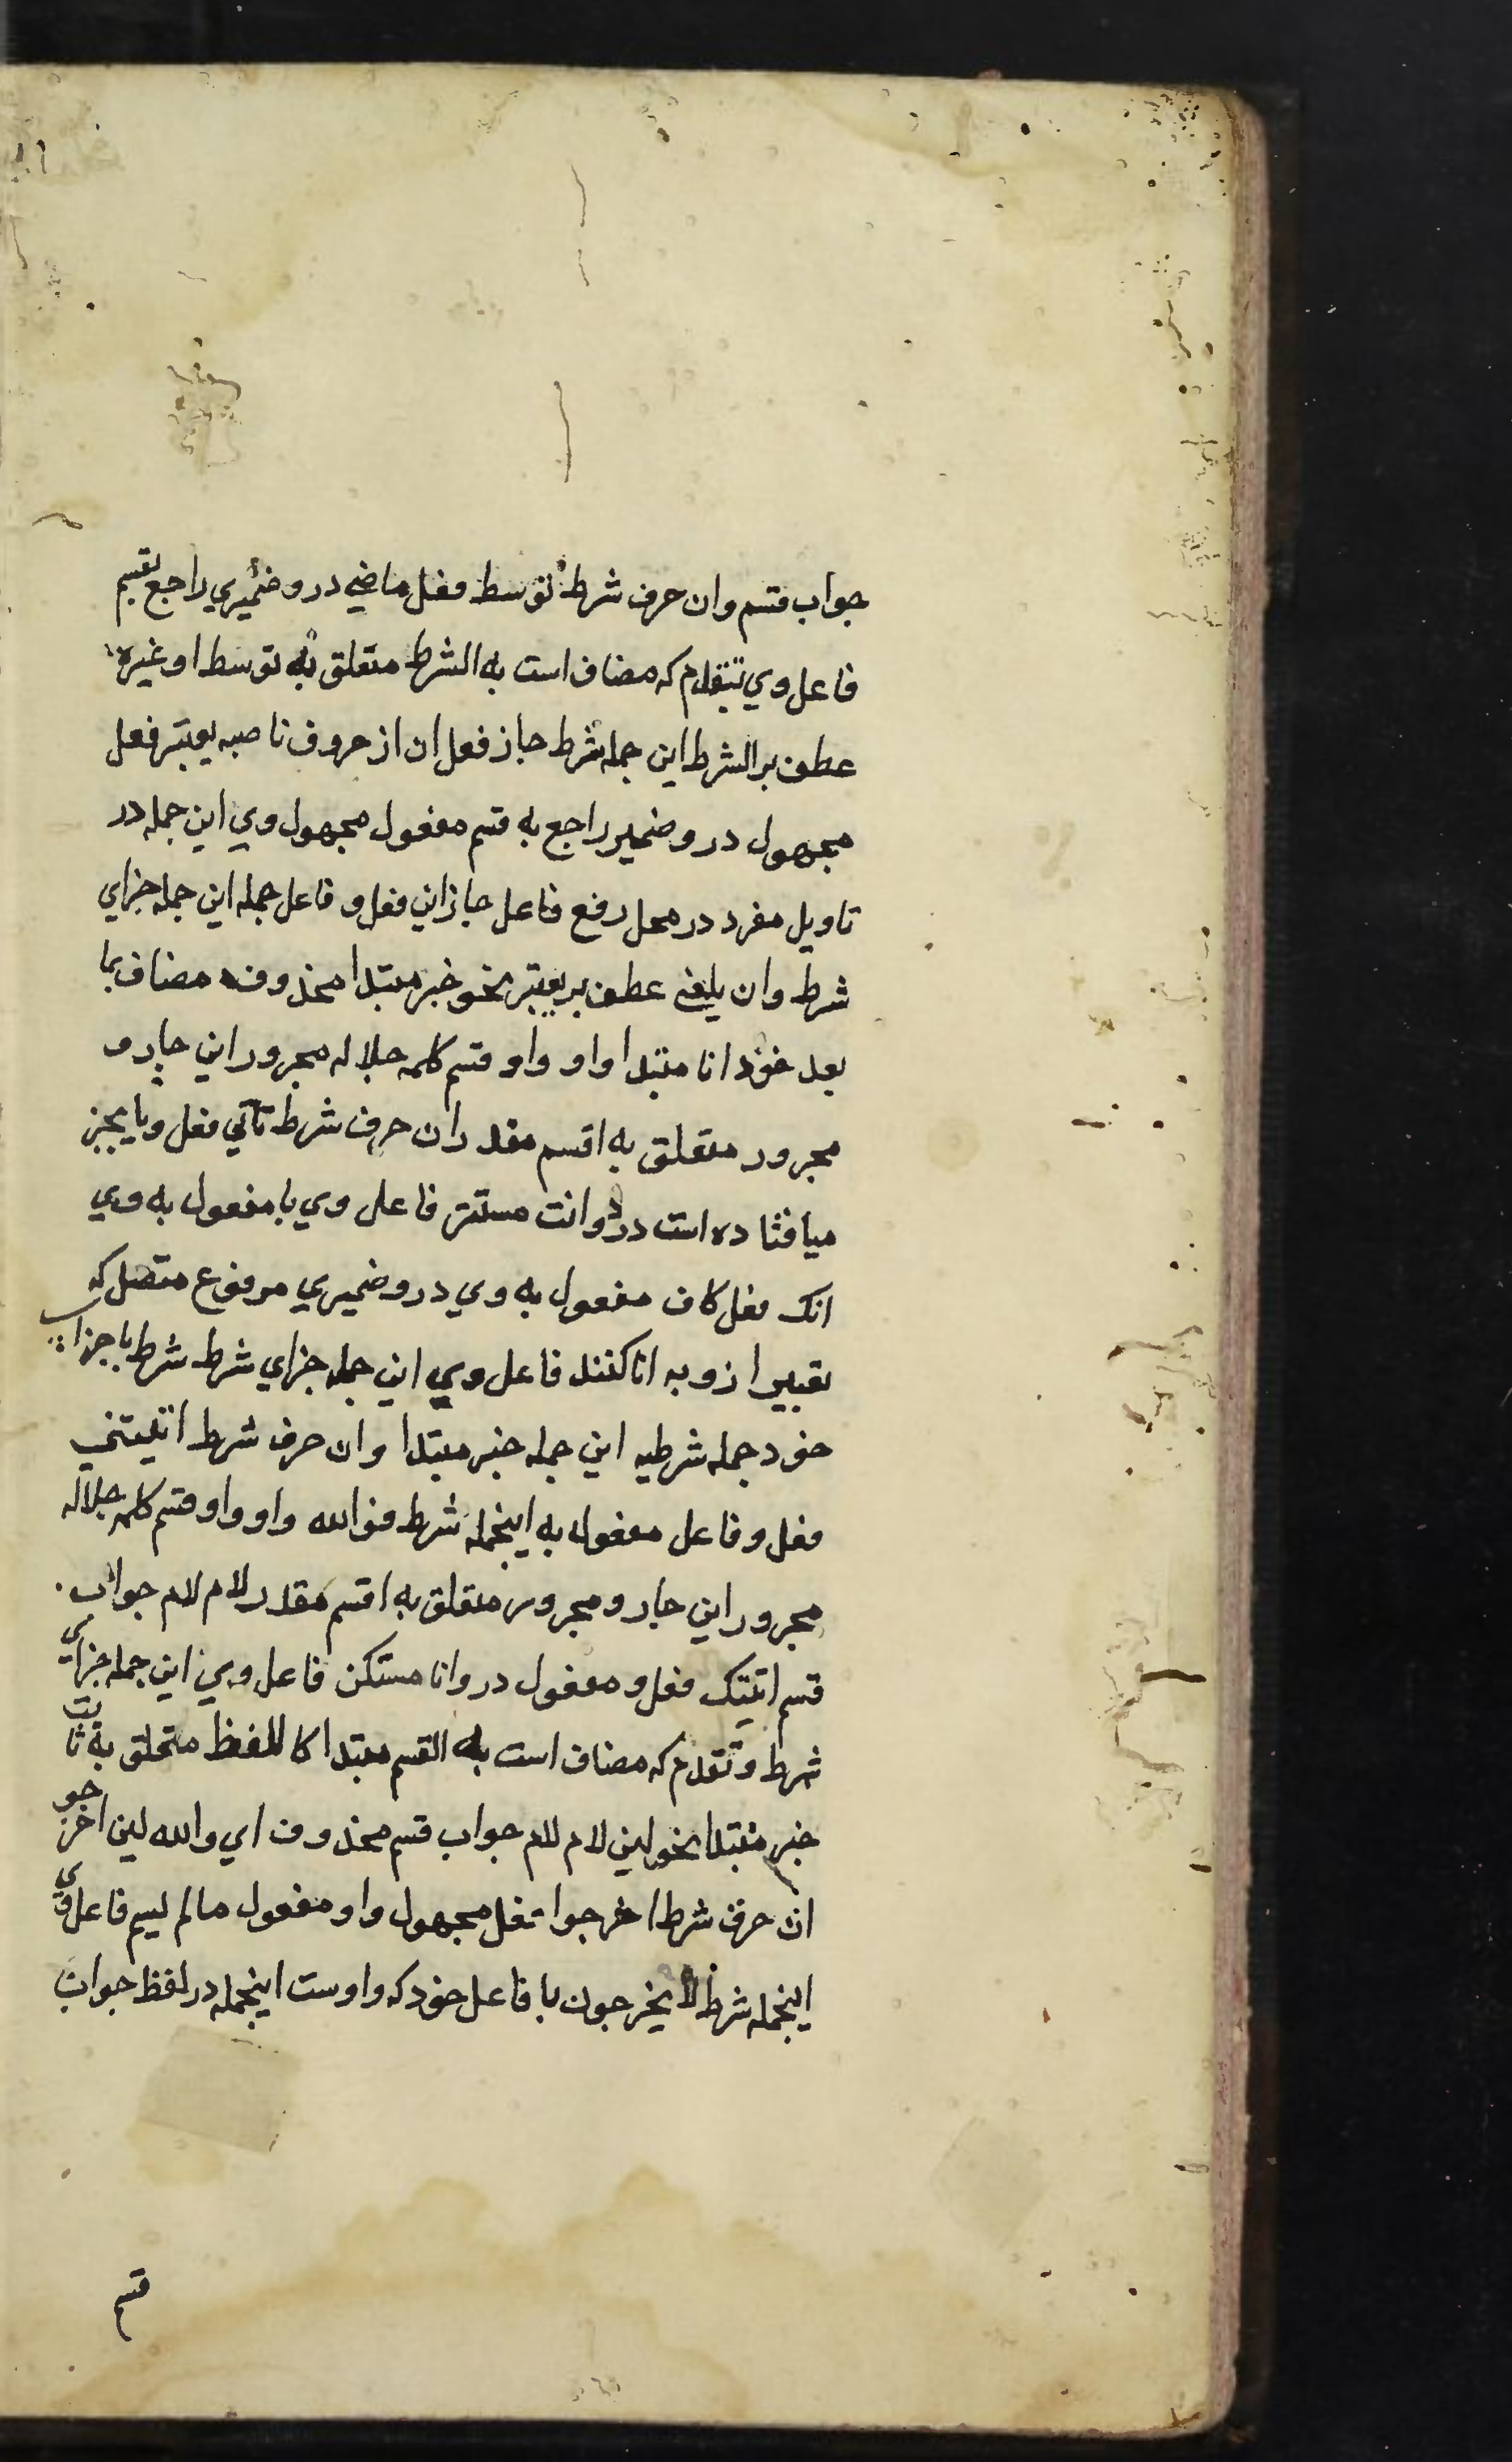 جواب قسم وان حرف شرط توسط فعل ماضي درو ضميري راجع بقسم
فاعل وي تتقدم كه مضاف است به الشرط متعلق به توسط او غيره
عطف بر الشرط اين جمله شرط جاز فعل ان از حروف ناصبه يعتبر فعل
مجهول درو ضمير راجع به قسم مفعول مجهول وي اين جمله در
تاويل مفرد در محل رفع فاعل جاز اين فعل و فاعل جمله اين جمله جزاي
شرط وان يلغي عطف بر يعتبر نحو خبر مبتدا محذوف مضاف بما
بعد خود انا مبتدا واو واو قسم كلمه جلاله مجرور اين جار و
مجرور متعلق به اقسم مقدر ان حرف شرط تاتي فعل و يا بجز
ميافتاده است درو انت مستتر فاعل وي يا مفعول به وي
اتك فعل كاف مفعول به وي درو ضميري مرفوع متصل كه
تعبير ازو به انا كنند فاعل وي اين جمله جزاي شرط شرط با جزاي
خود جمله شرطيه اين جمله خبر مبتدا وان حرف شرط اتيتني
فعل و فاعل مفعول به اينجمله شرط فوالله واو واو قسم كلمه جلاله
مجرور اين جار و مجرور متعلق به اقسم مقدر لام لام جواب
قسم اتيتك فعل و مفعول درو انا مستكن فاعل وي اين جمله جزاي
شرط و تقدم كه مضاف است به القسم مبتدا كاللفظ متعلق به ثابت
خبر مبتدا نحو لين لام لام جواب قسم محذوف اي والله لين اخرجو
ان حرف شرط اخرجوا فعل مجهول واو مفعول مالم ليسم فاعل وي
اينجمله شرط لا يخرجون با فاعل خود كه واوست اينجمله در لفظ جواب
قسم